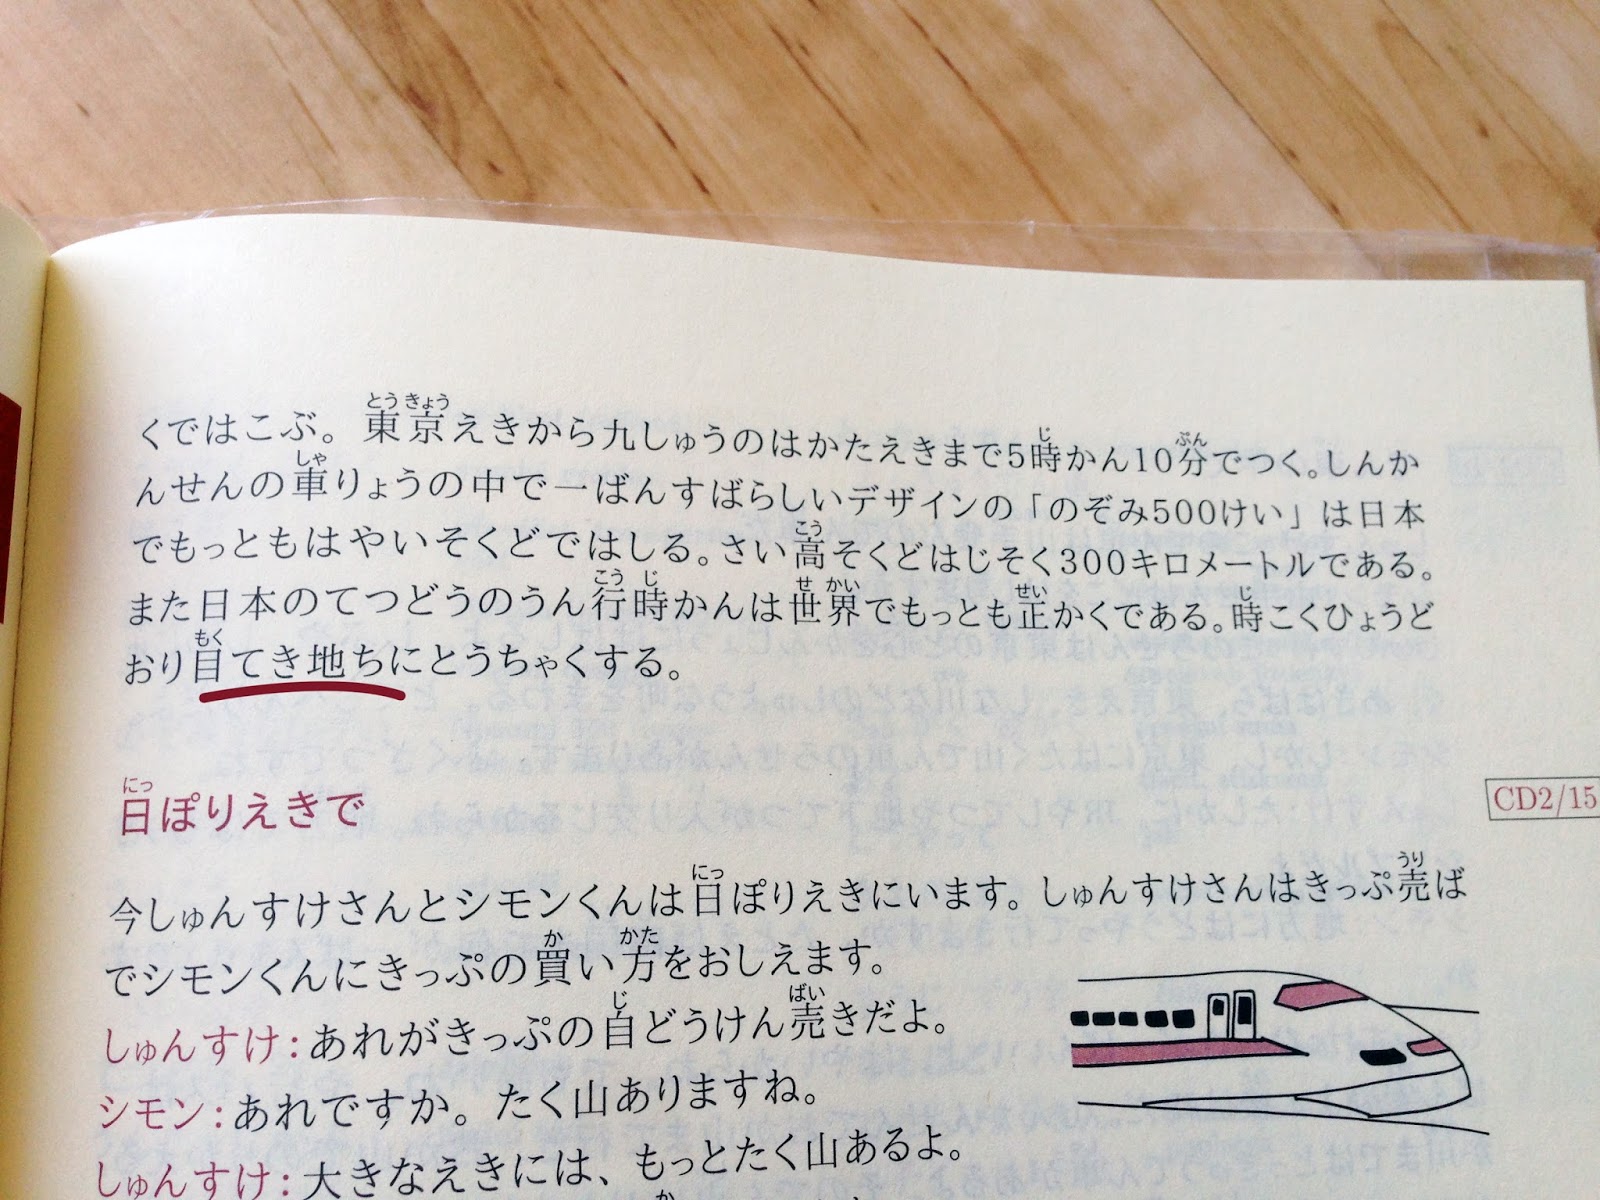 くではこぶ。東京えきから九しゅうのはかたえきまで5時かん10分でつく。しんか
んせんの車りょうの中で一ばんすばらしいデザインの「のぞみ500けい」は日本
でもっともはやいそくどではしる。さい高そくどはじそく300キロメートルである。
また日本のてつどうのうん行時かんは世界でもっとも正かくである。時こくひょうど
おり目てき地ちにとうちゃくする。
日ぽりえきで
CD2/15
今しゅんすけさんとシモンくんは日ぽりえきにいます。しゅんすけさんはきっぷ売ば
でシモンくんにきっぷの買い方をおしえます。
しゅんすけ:あれがきっぷの自どうけん売きだよ。
シモン:あれですか。たく山ありますね。
しゅんすけ:大きなえきには、もっとたく山あるよ。